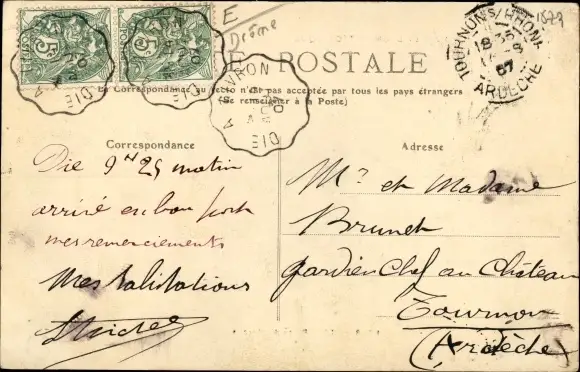 E
Drôme
1679
E POSTALE
La Correspondance au recto n'est pas acceptée par tous les pays étrangers
(Se renseigner à la Poste)
TOURNON S/ RHONE
ARDÈCHE
07
DIE A
LIVRON
Correspondance
Adresse
Die 9h 25 matin
arrivé en bon port
mes remerciements
Mes salutations
Mr et Madame
Brunet
gardien Chef au Château
Tournon
(Ardèche)